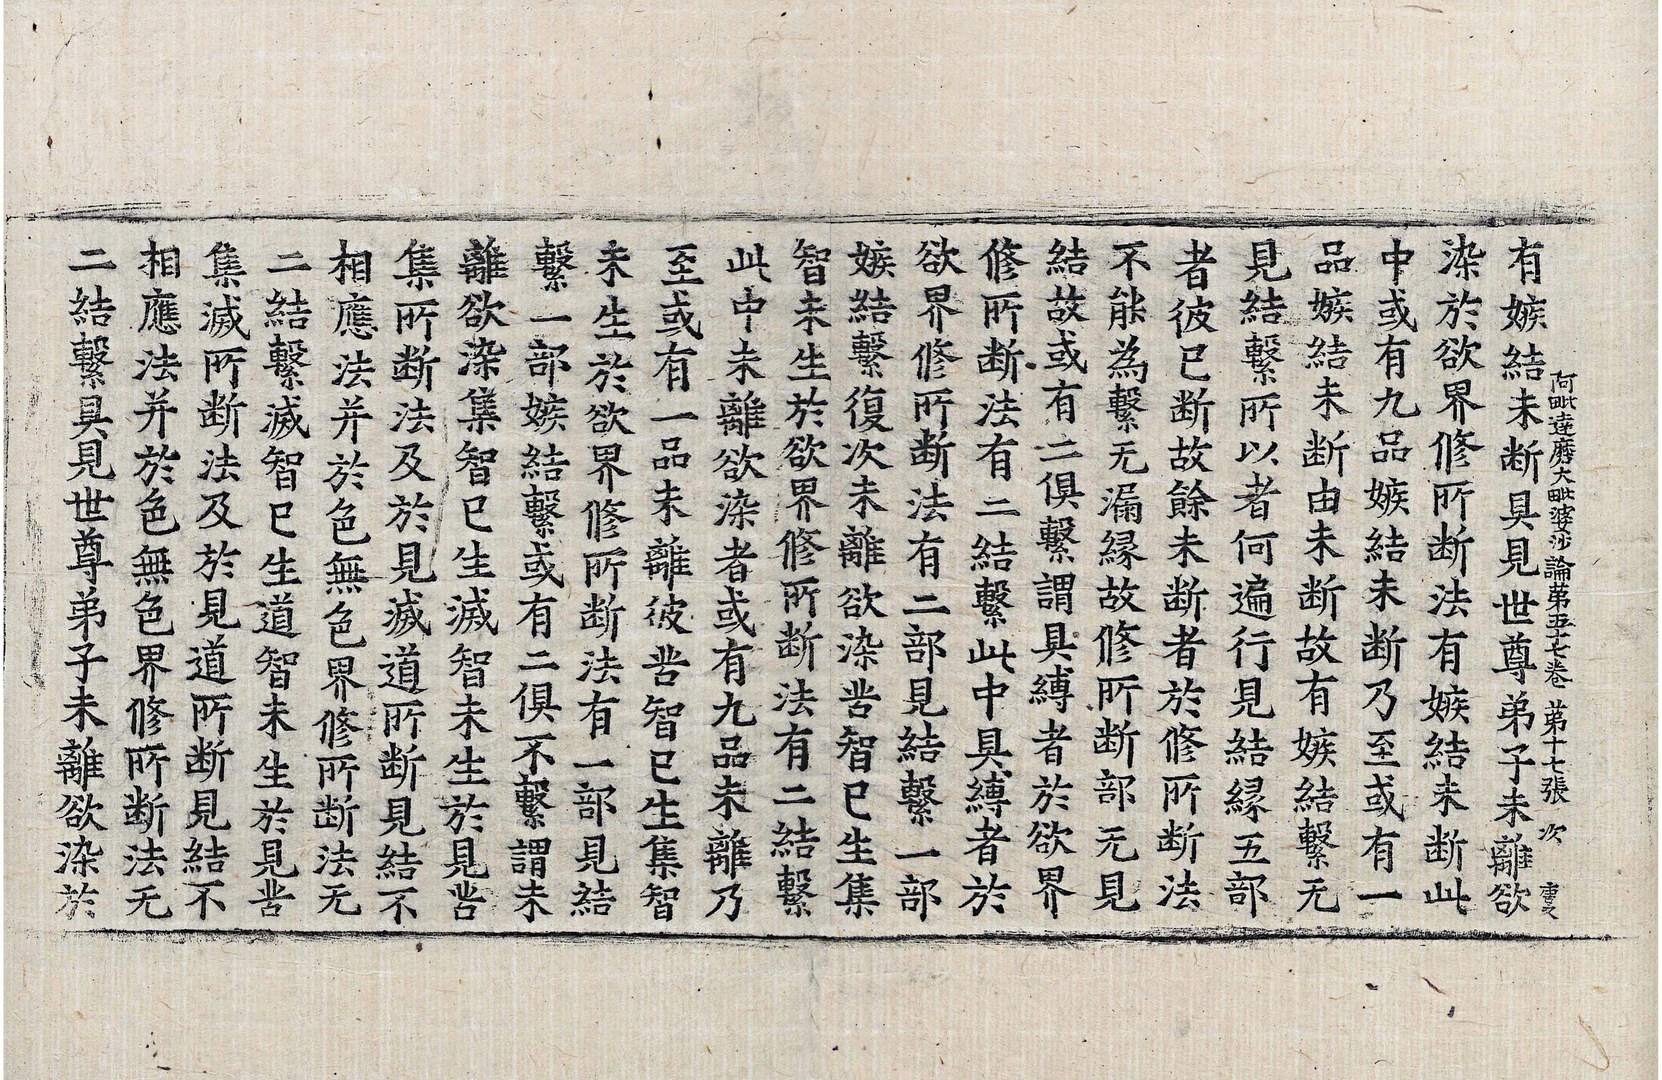 阿毗達磨大毗婆沙論第五十七卷 第十七張 次
有嫉結未断具見世尊弟子未離欲
染於欲界修所断法有嫉結未断此
中或有九品嫉結未断乃至或有一
品嫉結未断由未断故有嫉結繫无
見結繫所以者何遍行見結縁五部
者彼已断故餘未断者於修所断法
不能為繫无漏縁故修所断部无見
結故或有二俱繫謂具縛者於欲界
修所断法有二結繫此中具縛者於
欲界修所断法有二部見結繫一部
嫉結繫復次未離欲染苦智已生集
智未生於欲界修所断法有二結繫
此中未離欲染者或有九品未離乃
至或有一品未離彼苦智已生集智
未生於欲界修所断法有一部見結
繫一部嫉結繫或有二俱不繫謂未
離欲染集智已生滅智未生於見苦
集所断法及於見滅道所断見結不
相應法并於色無色界修所断法无
二結繫滅智已生道智未生於見苦
集滅所断法及於見道所断見結不
相應法并於色無色界修所断法无
二結繫具見世尊弟子未離欲染於